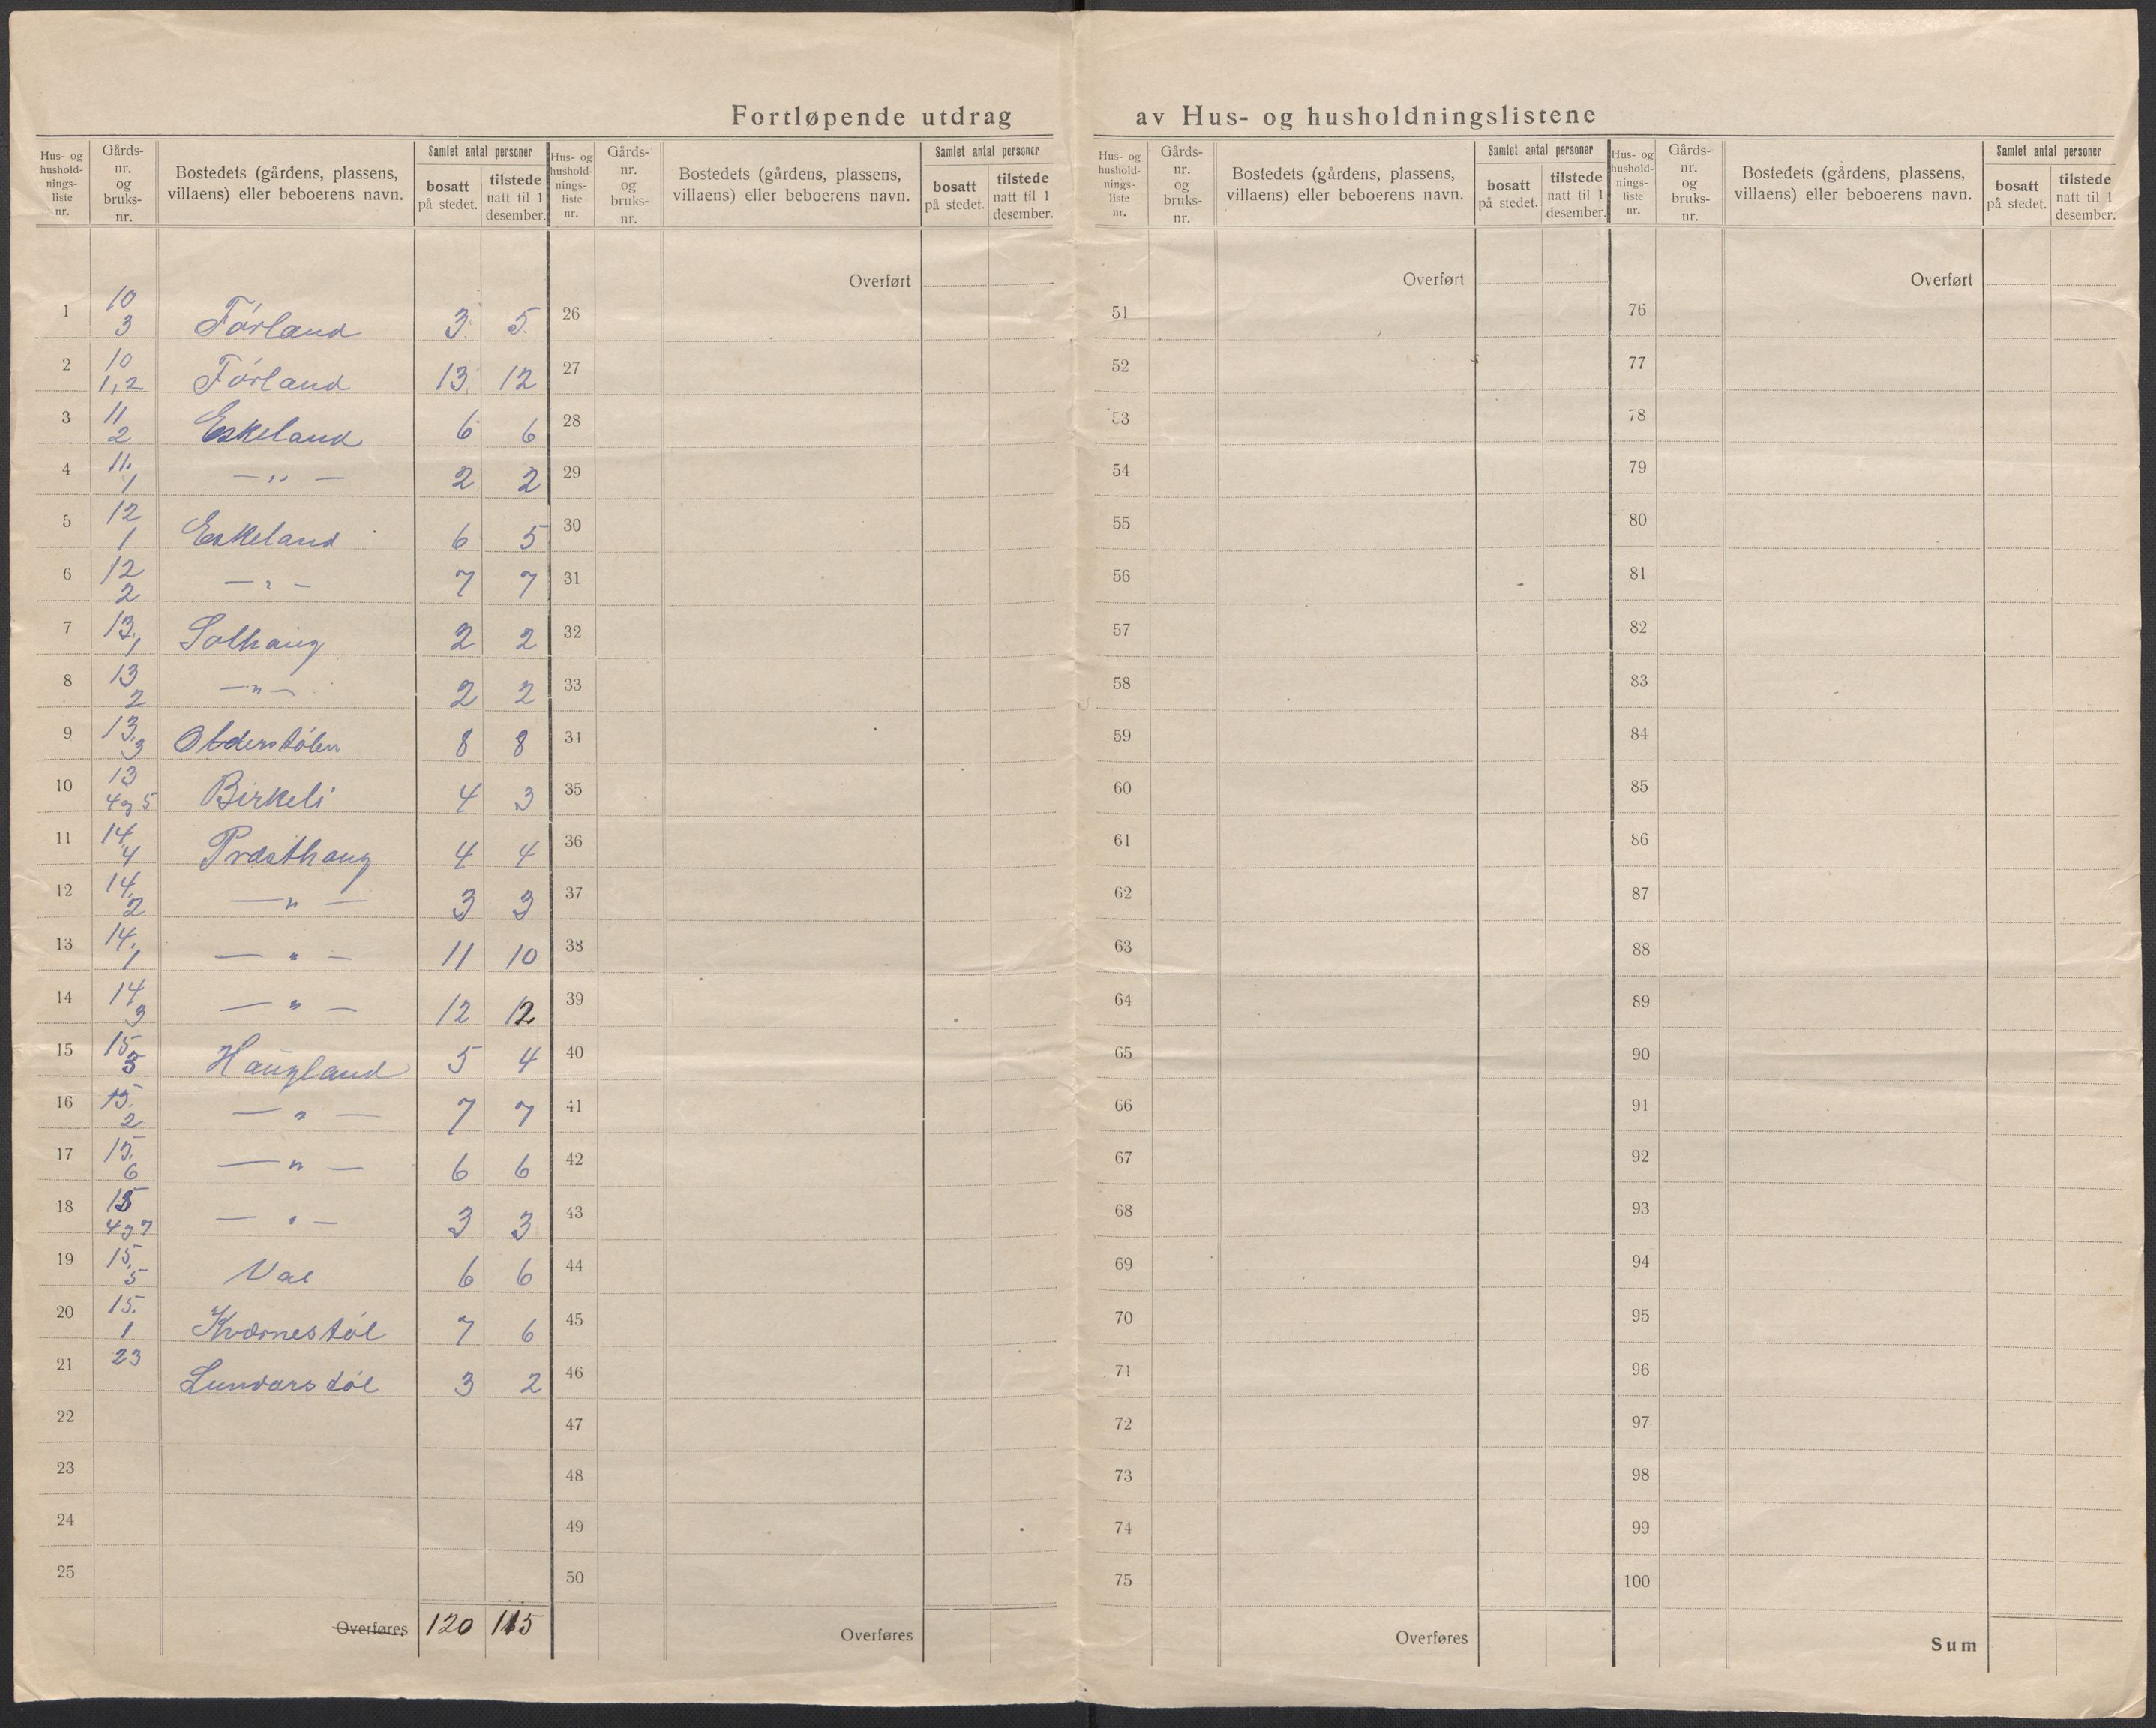 Fortløpende utdrag av Hus- og husholdningslistene
Hus- og hushold- nings- liste nr. | Gårds- nr. og bruks- nr. | Bostedets (gårdens, plassens, villaens) eller beboerens navn. | Samlet antal personer | bosatt på stedet. | tilstede natt til 1 desember.
1 | 10 3 | Førland | 3 | 5
2 | 10 1,2 | Førland | 13 | 12
3 | 11 2 | Eskeland | 6 | 6
4 | 11. 1 | — „ — | 2 | 2
5 | 12 1 | Eskeland | 6 | 5
6 | 12 2 | — „ — | 7 | 7
7 | 13. 1 | Solhaug | 2 | 2
8 | 13 2 | — „ — | 2 | 2
9 | 13. 3 | 8 | 8
10 | 13 4 og 5 | Birkeli | 4 | 3
11 | 14. 4 | Præsthaug | 4 | 4
12 | 14. 2 | — „ — | 3 | 3
13 | 14. 1 | — „ — | 11 | 10
14 | 14 3 | — „ — | 12 | 12
15 | 15. 3 | Haugland | 5 | 4
16 | 15. 2 | — „ — | 7 | 7
17 | 15. 6 | — „ — | 6 | 6
18 | 15 4 og 7 | — „ — | 3 | 3
19 | 15. 5 | 6 | 6
20 | 15. 1 | Kværnestøl | 7 | 6
21 | 23 | Lundarstøl | 3 | 2
22
23
24
25
Overføres | 120 | 115
Hus- og hushold- nings- liste nr. | Gårds- nr. og bruks- nr. | Bostedets (gårdens, plassens, villaens) eller beboerens navn. | Samlet antal personer | bosatt på stedet. | tilstede natt til 1 desember.
Overført
26
27
28
29
30
31
32
33
34
35
36
37
38
39
40
41
42
43
44
45
46
47
48
49
50
Overføres
Hus- og hushold- nings- liste nr. | Gårds- nr. og bruks- nr. | Bostedets (gårdens, plassens, villaens) eller beboerens navn. | Samlet antal personer | bosatt på stedet. | tilstede natt til 1 desember.
Overført
51
52
53
54
55
56
57
58
59
60
61
62
63
64
65
66
67
68
69
70
71
72
73
74
75
Overføres
Hus- og hushold- nings- liste nr. | Gårds- nr. og bruks- nr. | Bostedets (gårdens, plassens, villaens) eller beboerens navn. | Samlet antal personer | bosatt på stedet. | tilstede natt til 1 desember.
Overført
76
77
78
79
80
81
82
83
84
85
86
87
88
89
90
91
92
93
94
95
96
97
98
99
100
Sum